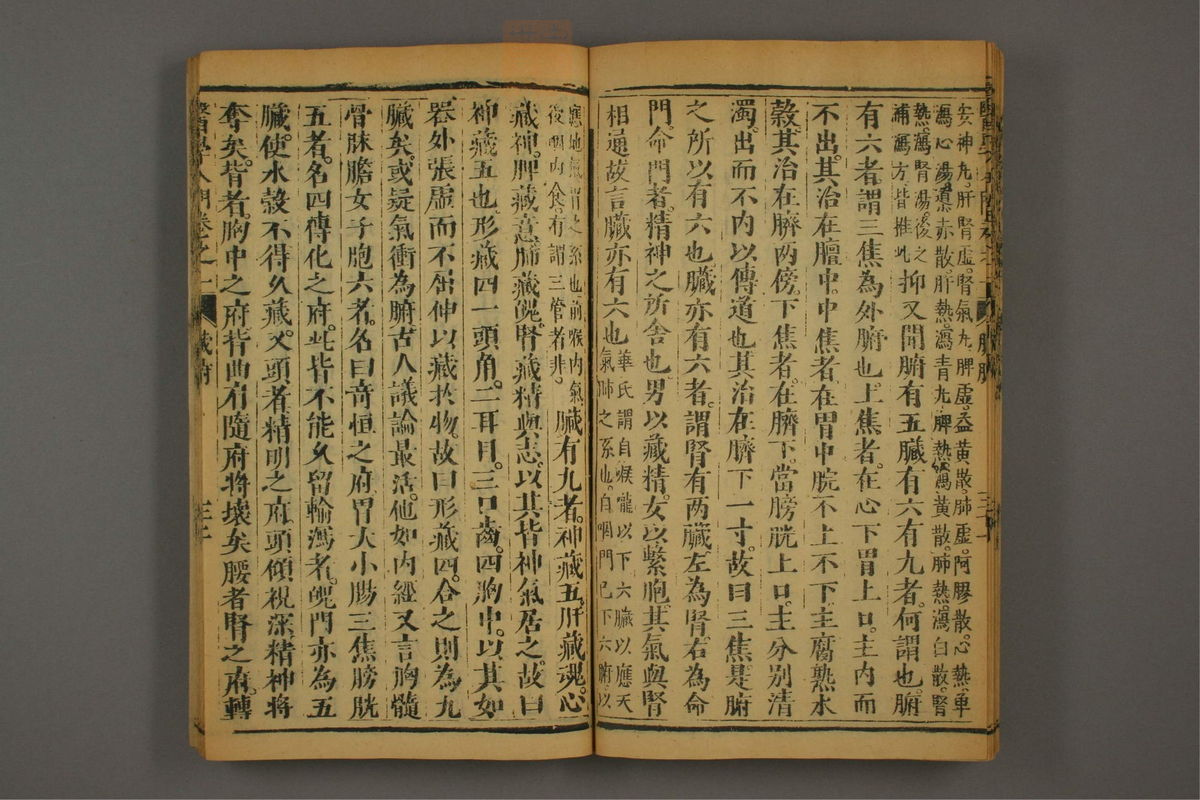 安神丸肝腎虛腎氣丸脾虛益黃散肺虛阿膠散心熱車
瀉心湯藁亦散肝熱瀉青丸脾熱瀉黃散肺熱瀉白散腎
熱瀉腎湯後之
補瀉方皆推此抑又聞腑有五臟有六有九者何謂也腑
有六者謂三焦為外腑也上焦者在心下胃上口主內而
不出其治在膻中中焦者在胃中脘不上不下主腐熟水
穀其治在臍兩傍下焦者在臍下當膀胱上口主分別清
濁出而不內以傳道也其治在臍下一寸故曰三焦是腑
之所以有六也臟亦有六者謂腎有兩臟左為腎右為命
門命門者精神之所舍也男以藏精女以繫胞其氣與腎
相通故言臟亦有六也華氏謂自喉嚨以下六臟以應天
氣肺之系也自咽門已下六腑以
應地氣胃之系也前喉內氣
後咽內食有謂三管者非臟有九者神藏五肝藏魂心
藏神脾藏意肺藏魄腎藏精與志以其皆神氣居之故曰
神藏五也形藏四一頭角二耳目三口齒四胸中以其如
器外張虛而不屈伸以藏於物故曰形藏四合之則為九
臟矣或疑氣衝為腑古人議論最活他如內經又言腦髓
骨脉膽女子胞六者名曰奇恒之府胃大小腸三焦膀胱
五者名四傳化之府此皆不能久留輸瀉者魄門亦為五
臟使水穀不得久藏又頭者精明之府頭傾視深精神將
奪矣背者胸中之府背曲肩隨府將壞矣腰者腎之府轉
醫學入門卷之一
臟腑
三十二